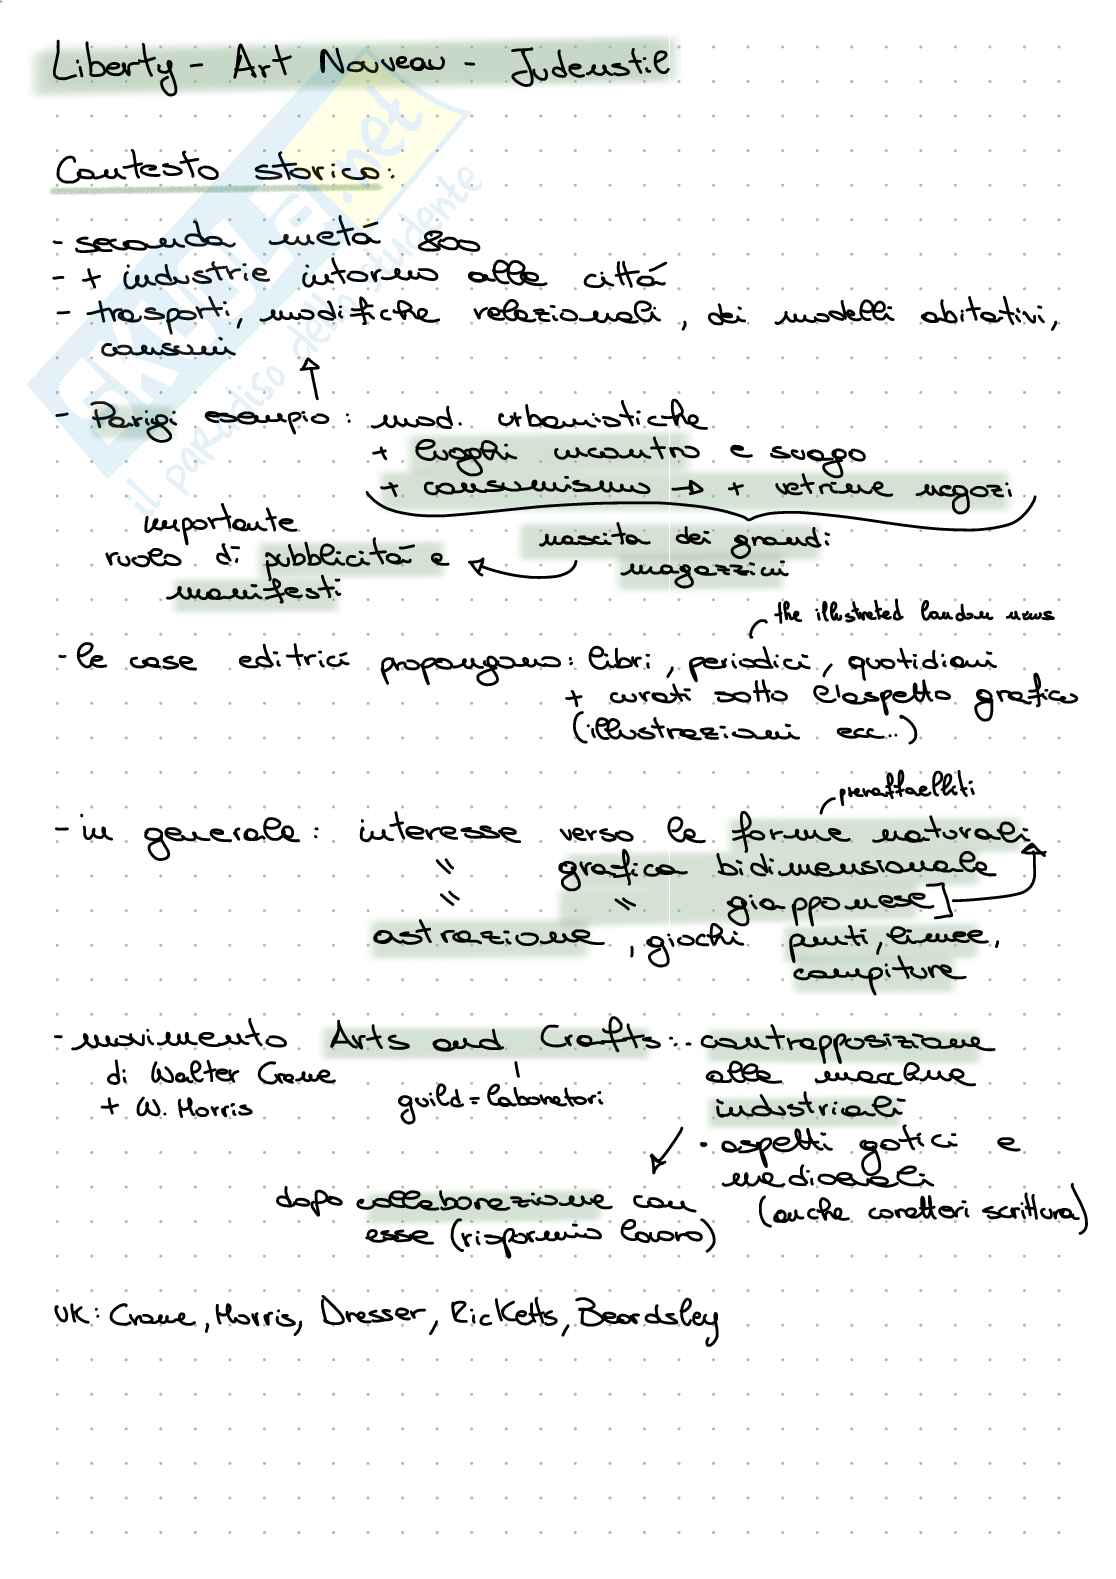 Liberty - Art Nouveau - Judenstil
Contesto storico:
- seconda metá 800
- + industrie intorno alle cittá
- trasporti, modifiche relazionali, dei modelli abitativi,
consumi
- Parigi esempio: mod. urbanistiche
+ luoghi incontro e svago
+ consumismo → + vetrine negozi
nascita dei grandi
magazzini
importante
ruolo di pubblicitá e
manifesti
the illustreted london news
- le case editrici propongono: libri, periodici, quotidiani
+ curati sotto l'aspetto grafico
(illustrazioni ecc..)
preraffaelliti
- in generale: interesse verso le forme naturali
" grafica bidimensionale
" " giapponese]
astrazione, giochi punti, linee,
campiture
- movimento Arts and Crafts: · contrapposizione
di Walter Crane
+ W. Morris
guild = laboratori
alle macchine
industriali
· aspetti gotici e
medioevali
(anche caratteri scrittura)
dopo collaborazione con
esse (risparmio lavoro)
UK: Crane, Morris, Dresser, Ricketts, Beardsley
skuola.net
il paradiso dello studente